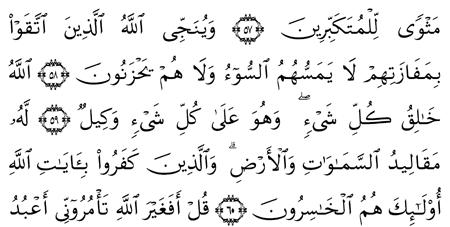 مَثْوًى لِّلْمُتَكَبِّرِينَ ﴿٥٧﴾ وَيُنَجِّى اللَّهُ الَّذِينَ اتَّقَوْا۟
بِمَفَازَتِهِمْ لَا يَمَسُّهُمُ السُّوٓءُ وَلَا هُمْ يَحْزَنُونَ ﴿٥٨﴾ اللَّهُ
خَـٰلِقُ كُلِّ شَىْءٍۢ ۖ وَهُوَ عَلَىٰ كُلِّ شَىْءٍۢ وَكِيلٌۭ ﴿٥٩﴾ لَّهُۥ
مَقَالِيدُ السَّمَـٰوَٰتِ وَالْأَرْضِ ۗ وَالَّذِينَ كَفَرُوا۟ بِـَٔايَـٰتِ اللَّهِ
أُو۟لَـٰٓئِكَ هُمُ الْخَـٰسِرُونَ ﴿٦٥﴾ قُلْ أَفَغَيْرَ اللَّهِ تَأْمُرُوٓنِّىٓ أَعْبُدُ